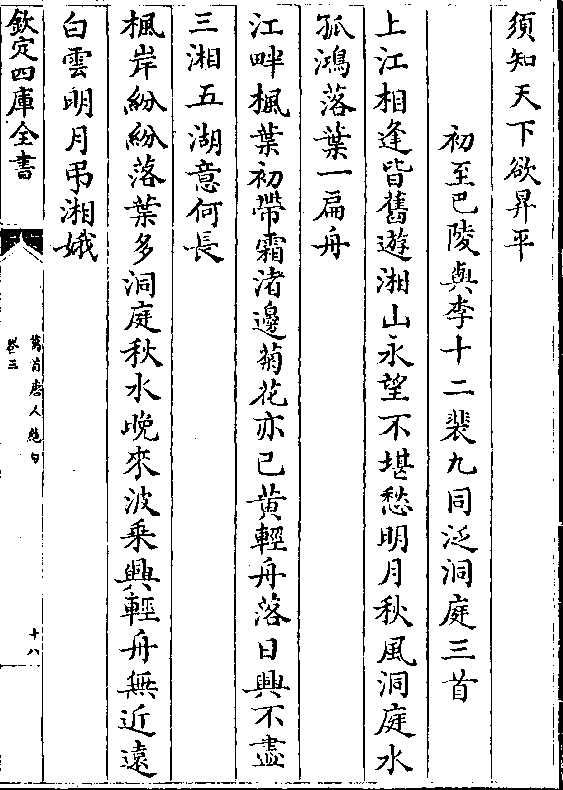 須知天下欲昇平
初至巴陵與李十二裴九同泛洞庭三首
上江相逢皆舊遊湘山永望不堪愁明月秋風洞庭水
孤鴻落葉一扁舟
江畔楓葉初帶霜渚邊菊花亦已黄輕舟落日興不盡
三湘五湖意何長
楓岸紛紛落葉多洞庭秋水晚來波乗興輕舟無近遠
白雲明月弔湘娥
欽定四庫全書
萬首唐人絶句
卷三
十八